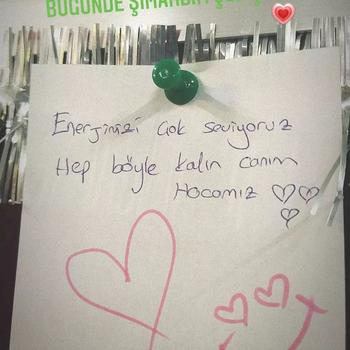 BUGÜNDE ŞIMARDIK
Enerjinizi çok seviyoruz
Hep böyle kalın canım
Hocamız